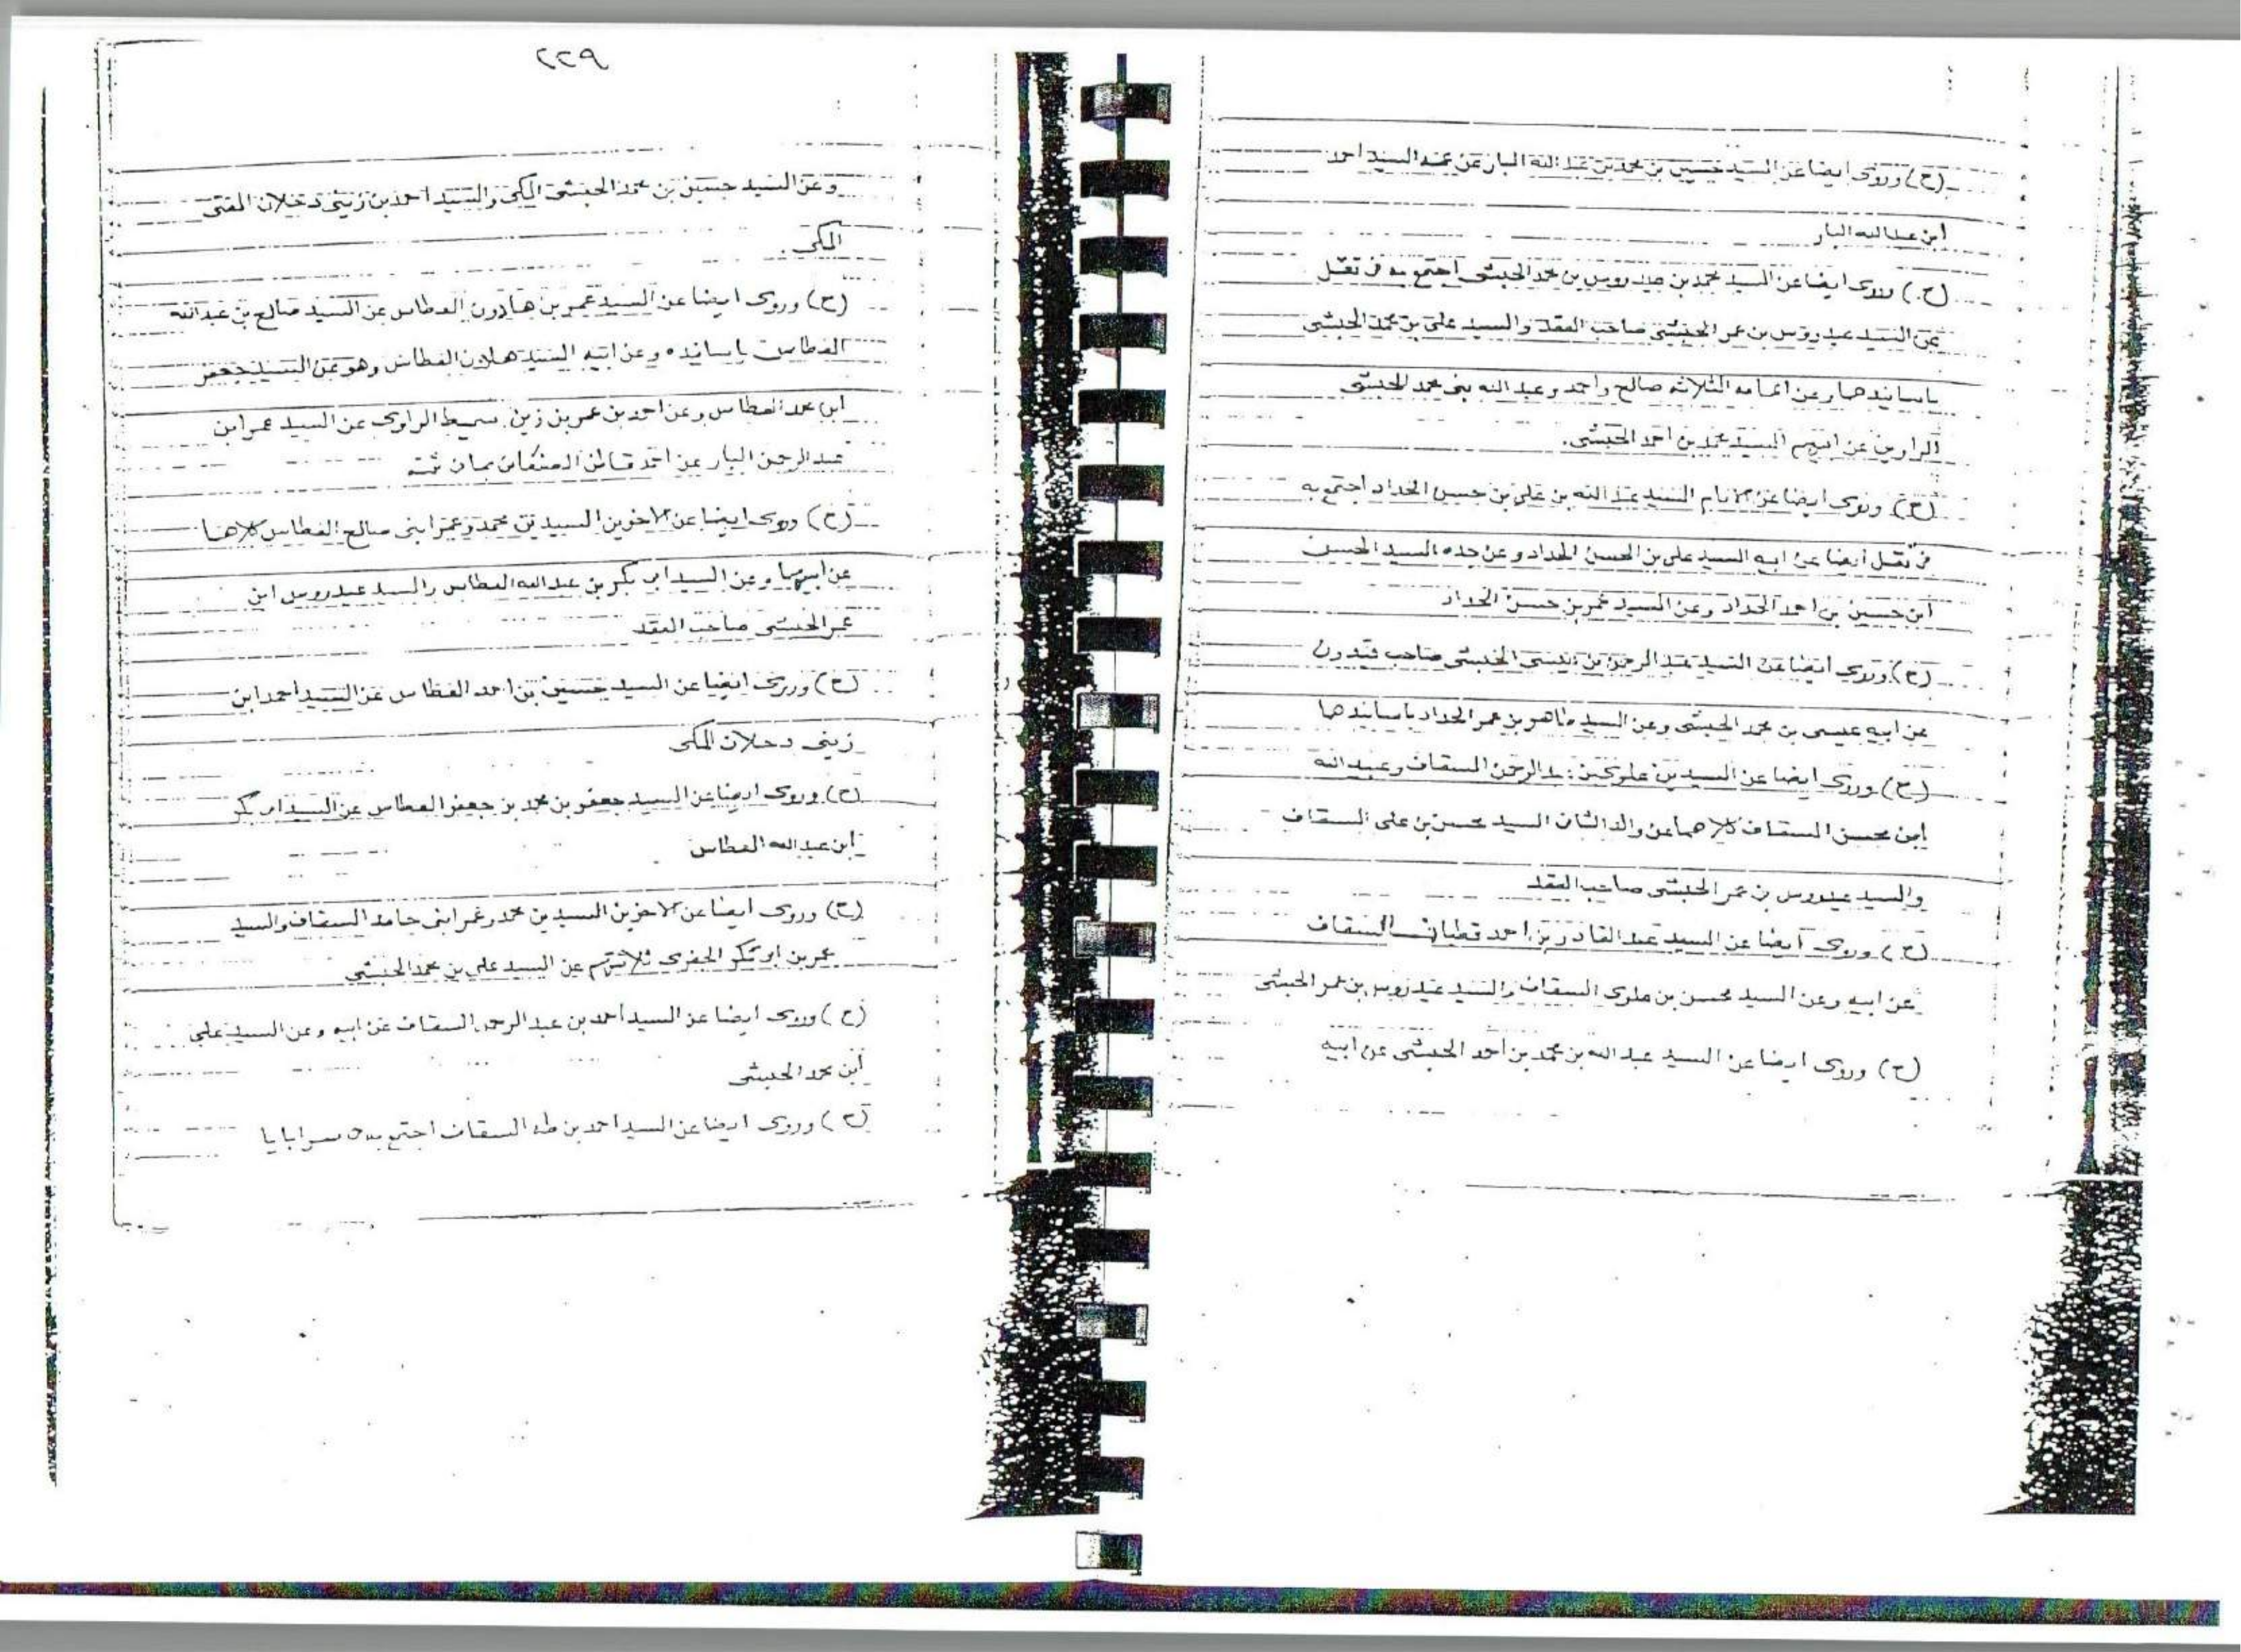 (ح) وروى ايضا عن السيد حسين بن محمد بن عبد الله البار عن عمه السيد احمد
ابن عبد الله البار
(ح) وروى ايضا عن السيد محمد بن عيدروس بن محمد الحبشى اجتمع به فى تقل
عن السيد عيدروس بن عمر الحبشى صاحب العقد والسيد على بن محمد الحبشى
باسانيدهما وعن اعمامه الثلاثه صالح واحمد وعبد الله بنى محمد الحبشى
الراوين عن ابيهم السيد محمد بن احمد الحبشى.
(ح) وروى ايضا عن الامام السيد عبد الله بن على بن حسن الحداد اجتمع به
فى تقل ايضا عن ابيه السيد على بن الحسن الحداد وعن جده السيد الحسن
ابن حسين بن احمد الحداد وعن السيد عمر بن حسن الحداد
(ح) وروى ايضا عن السيد عبد الرحمن بن عيسى الحبشى صاحب قيدون
عن ابيه عيسى بن محمد الحبشى وعن السيد طاهر بن عمر الحداد باسانيدهما
(ح) وروى ايضا عن السيدين علوى بن عبد الرحمن السقاف وعبد الله
ابن محسن السقاف كلاهما عن والد الثان السيد محسن بن على السقاف
والسيد عيدروس بن عمر الحبشى صاحب العقد
(ح) وروى ايضا عن السيد عبد القادر بن احمد قطبان السقاف
عن ابيه وعن السيد محسن بن علوى السقاف والسيد عيدروس بن عمر الحبشى
(ح) وروى ايضا عن السيد عبد الله بن محمد بن احمد الحبشى عن ابيه
٢٢٩
وعن السيد حسين بن محمد الحبشى المكى والسيد احمد بن زينى دحلان المفتى
المكى.
(ح) وروى ايضا عن السيد عمر بن هادون العطاس عن السيد صالح بن عبد الله
العطاس باسانيده وعن ابيه السيد هادون العطاس وهو عن السيد جعفر
ابن محمد العطاس وعن احمد بن عمر بن زين سميط الراوى عن السيد عمر ابن
عبد الرحمن البار عن احمد قاطن
(ح) وروى ايضا عن الاخوين السيدين محمد وعمر ابنى صالح العطاس كلاهما
عن ابيهما وعن السيد ابى بكر بن عبد الله العطاس والسيد عيدروس ابن
عمر الحبشى صاحب العقد
(ح) وروى ايضا عن السيد حسين بن احمد العطاس عن السيد احمد ابن
زينى دحلان المكى
(ح) وروى ايضا عن السيد جعفر بن محمد بن جعفر العطاس عن السيد ابى بكر
ابن عبد الله العطاس
(ح) وروى ايضا عن الاخوين السيدين محمد وعمر ابنى حامد السقاف والسيد
عمر بن ابو بكر الجفرى ثلاثتهم عن السيد على بن محمد الحبشى
(ح) وروى ايضا عن السيد احمد بن عبد الرحمن السقاف عن ابيه وعن السيد على
ابن محمد الحبشى
(ح) وروى ايضا عن السيد احمد بن طه السقاف اجتمع به فى سرابايا